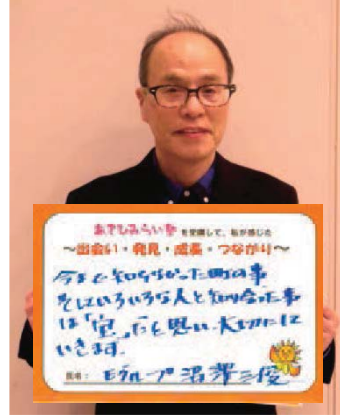 あさひみらい塾を受講して、私が感じた
～出会い・発見・成長・つながり～
今まで知らなかった町の事
そしていろいろな人と知り合った事
は「宝」だと思い大切にして
いきます。
氏名： Eグループ 沼澤三俊